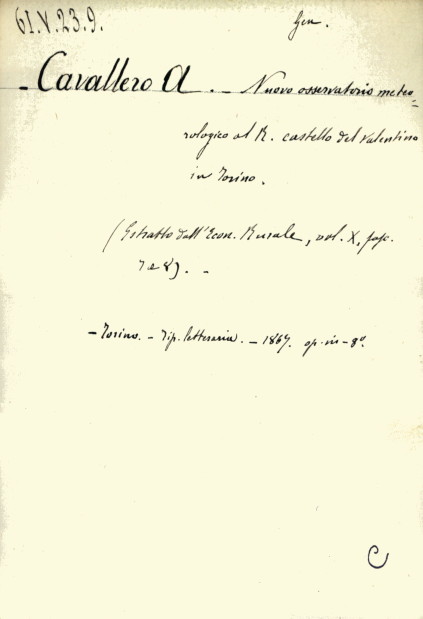 61.V.23.9.
Gen.
- Cavallero A. - Nuovo osservatorio meteo=
rologico al R. castello del Valentino
in Torino.
(Estratto dall'Econ. Rurale, vol. X, fasc.
7 e 8). -
- Torino. - Tip. letteraria. - 1867. op. in - 8º.
C